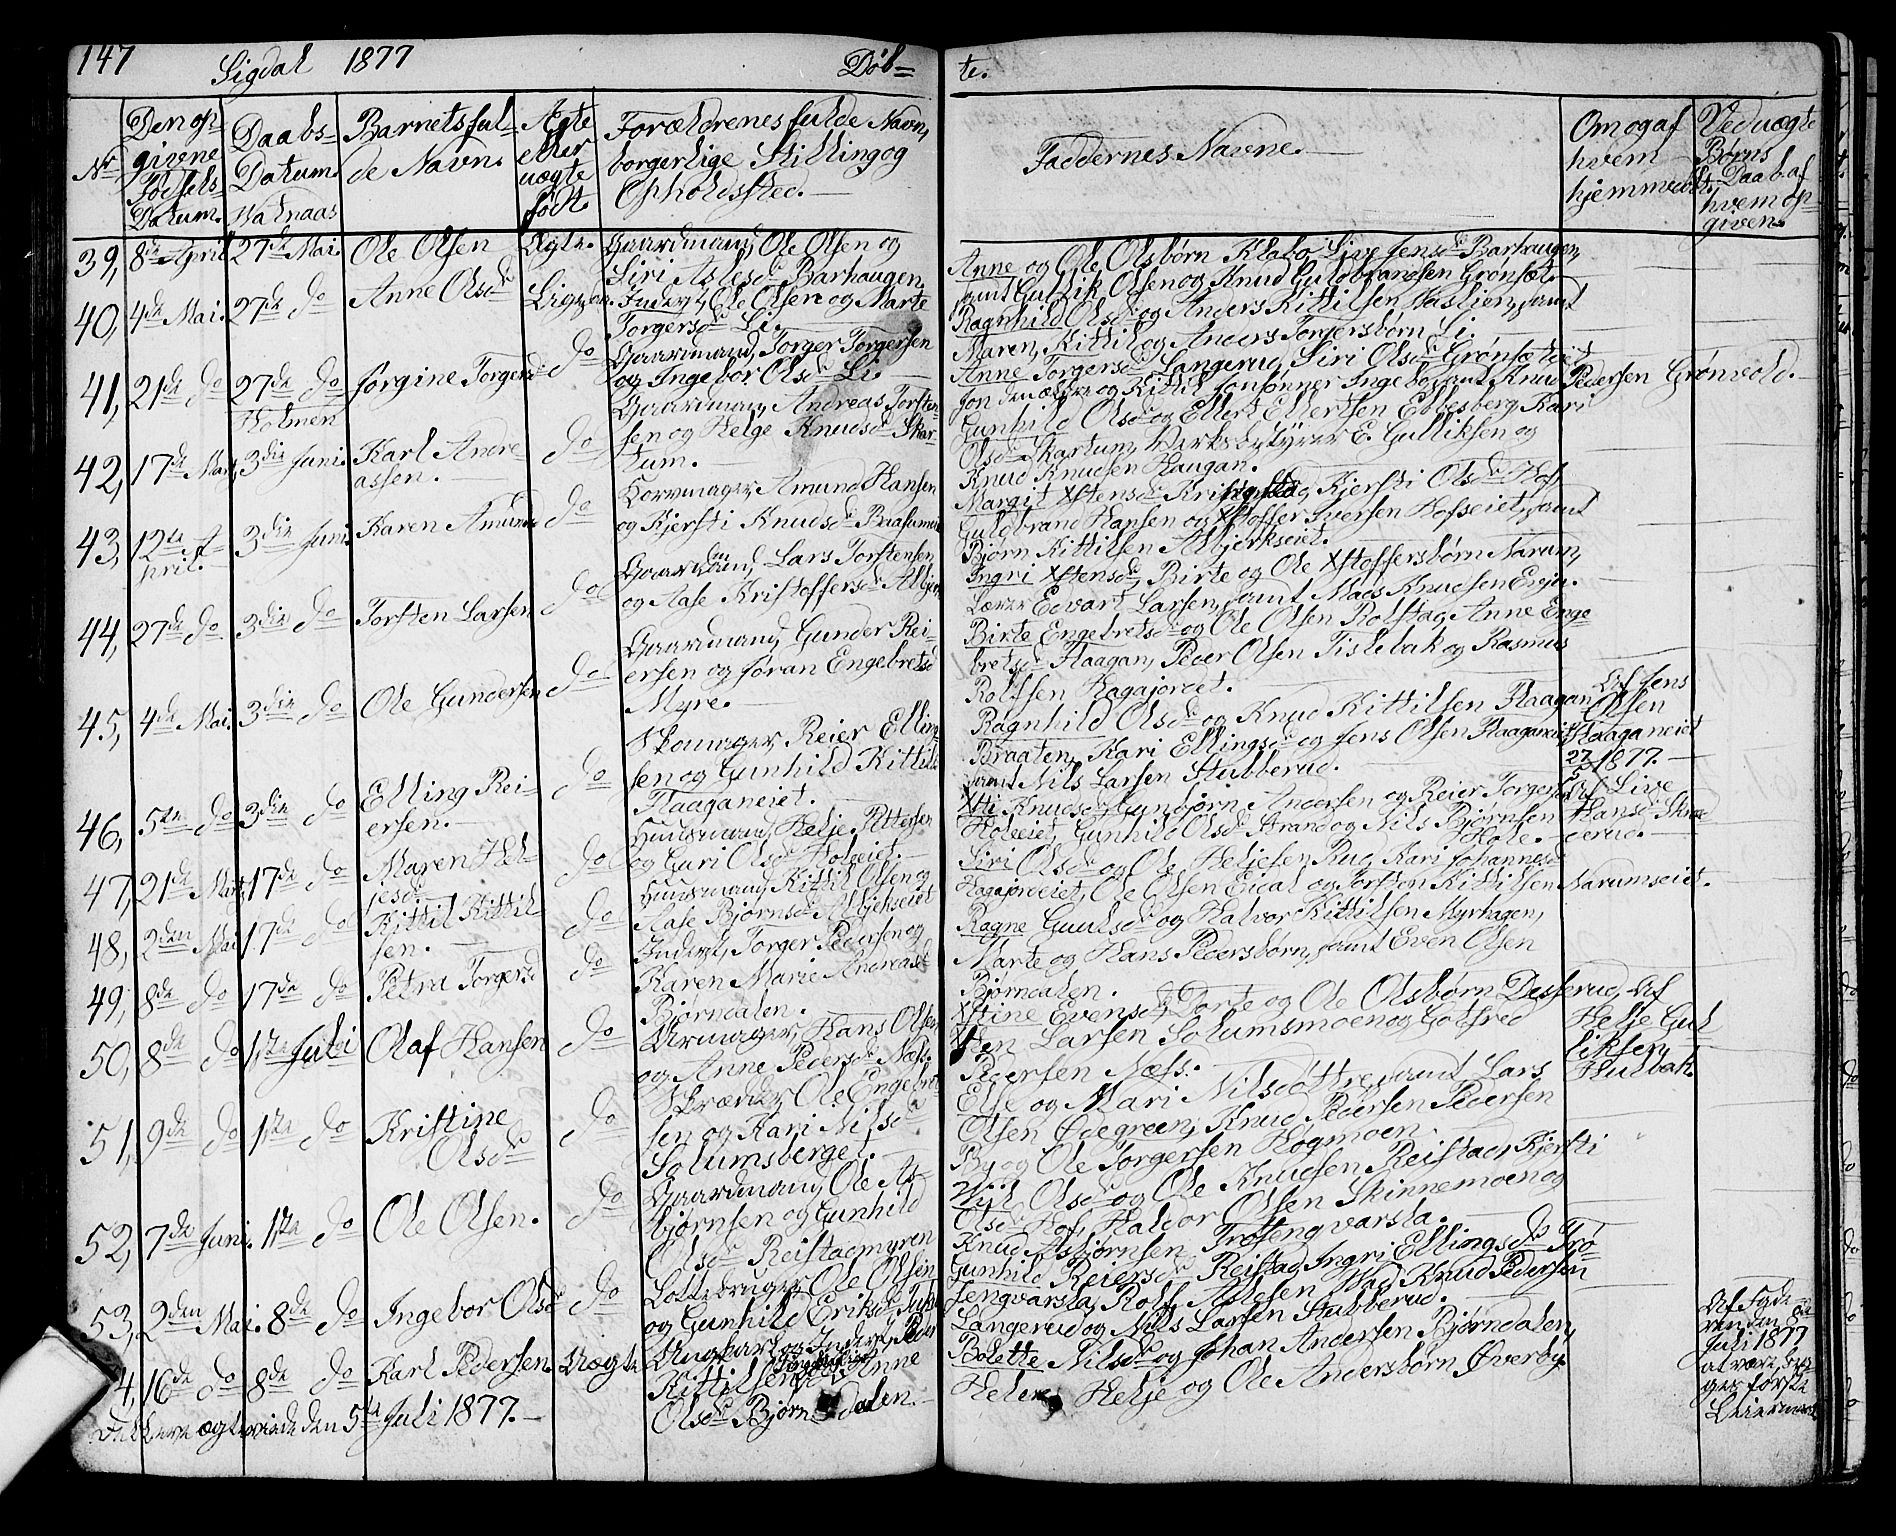 147 Sigdal 1877 Døb=
te.
Nr
Den op=
givene
Fødsels
Datum.
Daabs=
Datum.
Vatnaas
Barnets ful=
de Navn.
Ægte
eller
uægte
født.
Forældrenes fulde Navn,
borgerlige Stilling og
Opholdssted.
Faddernes Navne.
Om og af
hvem
hjemmedøbt.
Ved uægte
Børns
Daab af
hvem op=
given.
39, 8de April 27de Mai. Ole Olsen Ægte. Gaardmand, Ole Olsen og
Siri Aslesd. Barhaugen.
Anne og Ole Olsbørn Klabo, Live Jensd. Barhaugen,
samt Gullik Olsen og Knud Guldbrandsen Grønsæt.
40, 4de Mai. 27de do Anne Olsd. Ligesaa. Inderst, Ole Olsen og Marte
Torgersd. Li.
Ragnhild Olsd. og Anders Kittilsen Haslien, samt
Maren, Kittil og Anders Torgersbørn Li.
41, 21de do 27de do Jørgine Torgersd. do Gaardmand, Torger Torgersen
og Ingebor Olsd. Li.
Anne Torgersd. Langerud, Siri Olsd. Grønsæteiet,
Jon den ældre og Kittil Jonsønner Ingebo, samt Knud Pedersen Grønvold.
Holmen
42, 17de Marts 3die Juni. Karl Andre
assen. do Gaardmand, Andreas Torsten=
sen og Helge Knudsd. Skar=
tum.
Gunhild Olsd. og Ellert Ellertsen Ebbesberg, Kari
Olsd. Skartum, Værksbestyrer E. Gulliksen og
Knud Knudsen Haugan.
43, 12te A=
pril. 3die Juni. Karen Amunds. do Korvmager, Amund Hansen
og Kjersti Knudsd. Braatumeiet
Margit Xstensd. Kristofsd., Kjersti Olsd. Hof,
Guldbrand Hansen og Xstoffer Iversen Hofseiet, samt
Bjørn Kittilsen Albjerkseiet.
44, 27de do 3die do Torsten Larsen do Gaardmand, Lars Torstensen,
og Aase Kristoffersd. Albjerk
Ingri Xstensd., Birte og Ole Xstoffersbørn Narum,
Lærer Edvart Larsen, samt Mads Knudsen Evju.
45, 4de Mai. 3die do Ole Gundersen do Gaardmand, Gunder Rei=
ersen og Jøran Engebretsd.
Myre.
Birte Engebretsd. og Ole Olsen Rolstad, Anne Enge=
bretsd. Flaagan, Peder Olsen Tislebak og Rasmus
Rolfsen Hagajordet.
46, 5te do 3die do Elling Rei=
ersen. do Skomager, Reier Elling
sen og Gunhild Kittilsd.
Flaaganeiet.
Ragnhild Olsd. og Knud Kittilsen Flaagan
Braaten, Kari Ellingsd. og Jens Olsen Flaaganeiet,
samt Nils Larsen Stubberud.
Af Jens
Olsen
Flaaganeiet
27/5 1877.
47, 21de Marts 17de do Maren Hel=
jesd. do Huusmand, Helje Pettersen
og Guri Olsd. Holeeiet.
Xsti Knudsd., Gunbjørn Andersen og Reier Torgersen
Holeeiet, Gunhild Olsd. Strand og Nils Bjørnsen
Hole.
Af Live
Hansd. Skred
derud.
48, 2den Mai 17de do Kittil Kittil
sen. do Huusmand, Kittil Olsen og
Aase Bjørnsd. Albjerkseiet
Siri Olsd. og Ole Heljesen Rud, Kari Johannesd.
Hagajordeiet, Ole Olsen Eidal og Torsten Kittilsen Narumseiet.
49, 8de do 17de do Petra Torgersd. do Inderst, Torger Pedersen og
Karen Marie Andreasd.
Bjørndalen.
Ragne Guulsd. og Halvor Kittilsen Myrhagen,
Marte og Hans Pedersbørn, samt Even Olsen
Bjørndalen.
50, 8de do 1ste Juli Olaf Hansen do Urmager, Hans Olsen
og Anne Pedersd. Næss.
Xstine Evensd., Dorte og Ole Olsbørn Desserud,
Sten Larsen Solumsmoen og Gotfred
Pedersen Næss.
Af
Helje Gul
liksen,
Hulbak.
51, 9de do 1ste do Kristine
Olsd. do Skrædder, Ole Engebret
sen og Kari Nilsd.
Solumsberget.
Else og Mari Nilsdøttre, samt Lars
Olsen Ødegreen, Knud Pedersen Pedersen
By og Ole Torgersen Høgmoen.
52, 7de Juni. 1ste do Ole Olsen. do Gaardmand, Ole As=
bjørnsen og Gunhild
Olsd. Reistadmyren
Olsd. og Ole Knudsen Reistad, Kjersti
Olsd. Hof, Haldor Olsen Skinnemoen og
Knud Asbjørnsen Trøsengvarsla.
53, 2den Mai. 8de do Ingebor Olsd. do Lottebruger, Ole Olsen
og Gunhild Eriksd.
Gunhild Reiersd. Reistad, Ingri Ellingsd. Trø=
sengvarsla, Rolf Aslesen Hud Knud Pedersen
Langerud og Nils Larsen Stubberud.
4, 16de do 8de do Karl Pedersen. Uægte Ungkarl og Inderst, Peder
Kittilsen og Anne
Olsd. Bjørndalen.
Bolette Nilsd. og Johan Andersen Bjørndalen,
Helene Helje og Ole Andersbørn Øverby.
Af Fade=
ren den 8de
Juli 1877
at være beg
ges første
Leiermaal
ægteviede den 5te Juli 1877.